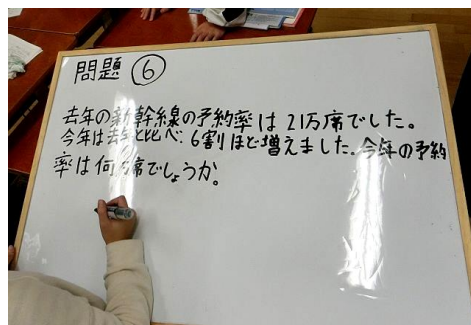 問題 ⑥
去年の新幹線の予約率は21万席でした。
今年は去年と比べ、6割ほど増えました。今年の予約
率は何万席でしょうか。